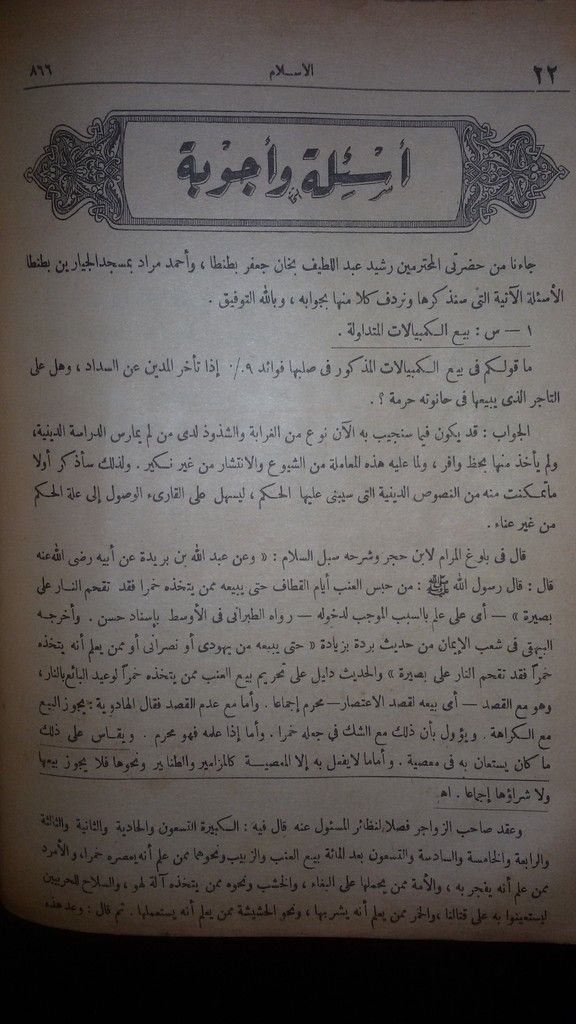 ٢٢ الاسلام ٨٦٦
أسئلة وأجوبة
جاءنا من حضرتى المحترمين رشيد عبد اللطيف بخان جعفر بطنطا ، وأحمد مراد بمسجد الجيارين بطنطا
الأسئلة الآتية التى سنذكرها ونردف كلا منها بجوابه ، وبالله التوفيق .
١ — س : بيع الكمبيالات المتداولة .
ما قولكم فى بيع الكمبيالات المذكور فى صلبها فوائد ٩٪ إذا تأخر المدين عن السداد ، وهل على
التاجر الذى يبيعها فى حانوته حرمة ؟ .
الجواب : قد يكون فيما سنجيب به الآن نوع من الغرابة والشذوذ لدى من لم يمارس الدراسة الدينية،
ولم يأخذ منها بحظ وافر ، ولما عليه هذه المعاملة من الشيوع والانتشار من غير نكير . ولذلك سأذكر أولا
ماتمكنت منه من النصوص الدينية التى سيبنى عليها الحكم ، ليسهل على القارىء الوصول إلى علة الحكم
من غير عناء .
قال فى بلوغ المرام لابن حجر وشرحه سبل السلام : « وعن عبد الله بن بريدة عن أبيه رضى الله عنه
قال : قال رسول الله ﷺ : من حبس العنب أيام القطاف حتى يبيعه ممن يتخذه خمرا فقد تقحم النار على
بصيرة » — أى على علم بالسبب الموجب لدخوله — رواه الطبرانى فى الأوسط بإسناد حسن . وأخرجه
البيهقى فى شعب الإيمان من حديث بردة بزيادة « حتى يبيعه من يهودى أو نصرانى أو ممن يعلم أنه يتخذه
خمراً فقد تقحم النار على بصيرة » والحديث دليل على تحريم بيع العنب ممن يتخذه خمراً لوعيد البائع بالنار،
وهو مع القصد — أى بيعه لقصد الاعتصار — محرم إجماعا . وأما مع عدم القصد فقال الهادوية : يجوز البيع
مع الكراهة . ويؤول بأن ذلك مع الشك فى جعله خمرا . وأما إذا علمه فهو محرم . ويقاس على ذلك
ما كان يستعان به فى معصية . وأما ما لا يفعل به إلا المعصية كالمزامير والطنابير ونحوها فلا يجوز بيعها
ولا شراؤها إجماعا . اه
وعقد صاحب الزواجر فصلا لنظائر المسئول عنه قال فيه : الكبيرة التسعون والحادية والثانية والثالثة
والرابعة والخامسة والسادسة والتسعون بعد المائة بيع العنب والزبيب ونحوهما ممن علم أنه يعصره خمرا، والأمرد
ممن علم أنه يفجر به ، والأمة ممن يحملها على البغاء ، والخشب ونحوه ممن يتخذه آلة لهو ، والسلاح للحربيين
ليستعينوا به على قتالنا ، والخمر ممن يعلم أنه يشربها ، ونحو الحشيشة ممن يعلم أنه يستعملها . ثم قال : وعد هذه